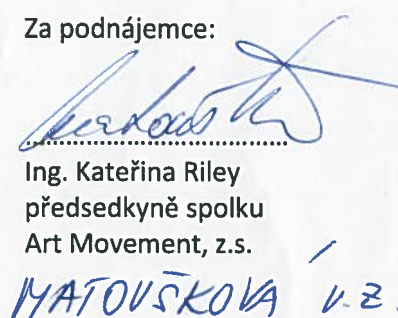 Za podnájemce:
Ing. Kateřina Riley
předsedkyně spolku
Art Movement, z.s.
MATOUŠKOVÁ v.z.